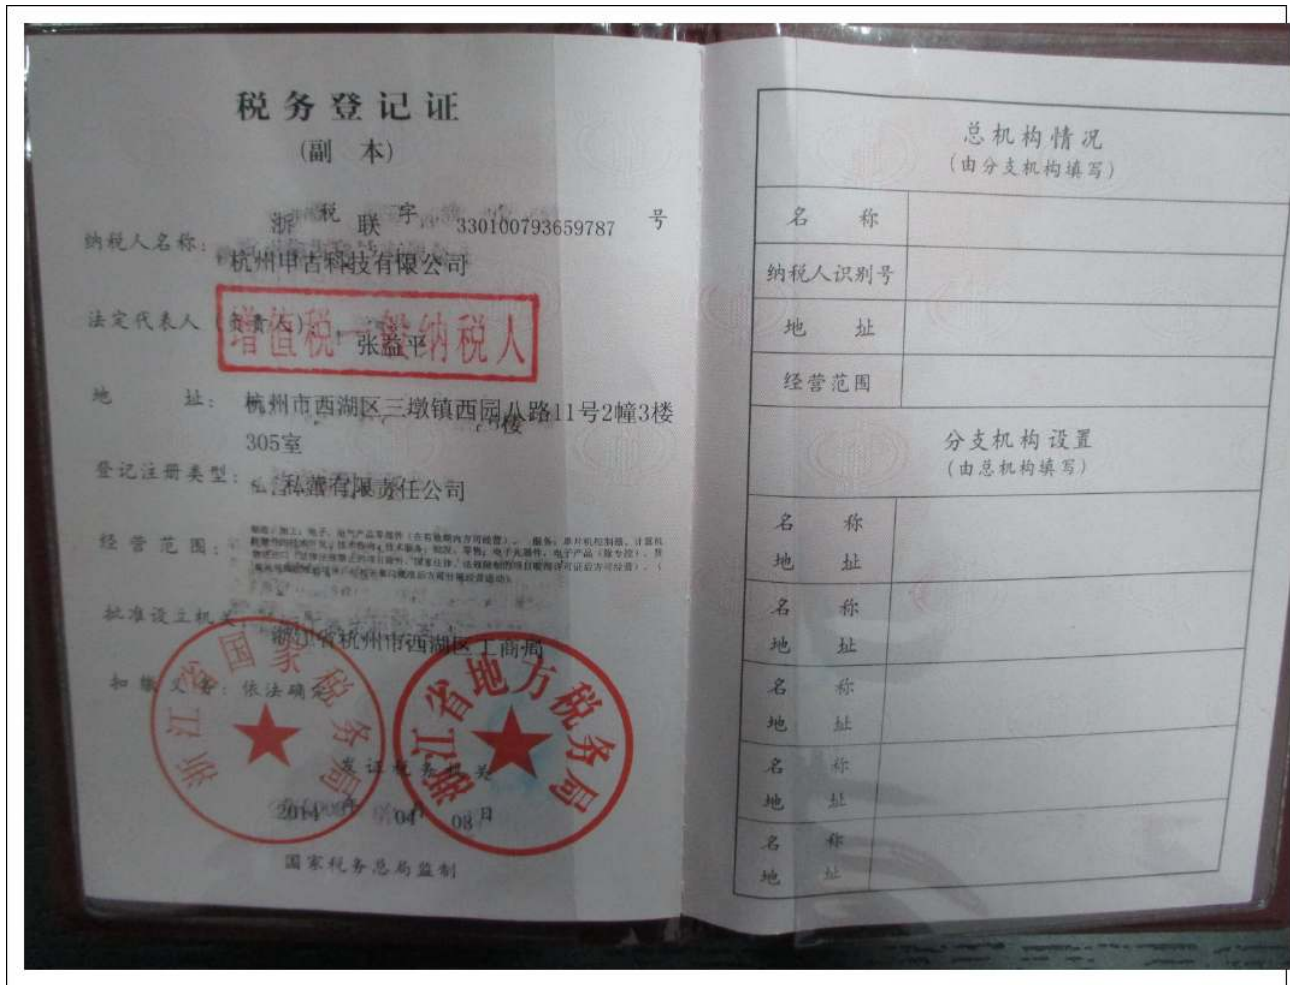 税务登记证
(副 本)
浙 税 联 字 330100793659787 号
纳税人名称:
杭州申古科技有限公司
法定代表人(负责人):
张益平
增值税一般纳税人
地 址: 杭州市西湖区三墩镇西园八路11号2幢3楼
305室
登记注册类型: 私营有限责任公司
经营范围:
批准设立机关:
浙江省杭州市西湖区工商局
扣缴义务: 依法确定
浙江省国家税务局
浙江省地方税务局
发证税务机关
2014 年 04 月 08 日
国家税务总局监制
总机构情况
(由分支机构填写)
名 称
纳税人识别号
地 址
经营范围
分支机构设置
(由总机构填写)
名 称
地 址
名 称
地 址
名 称
地 址
名 称
地 址
名 称
地 址